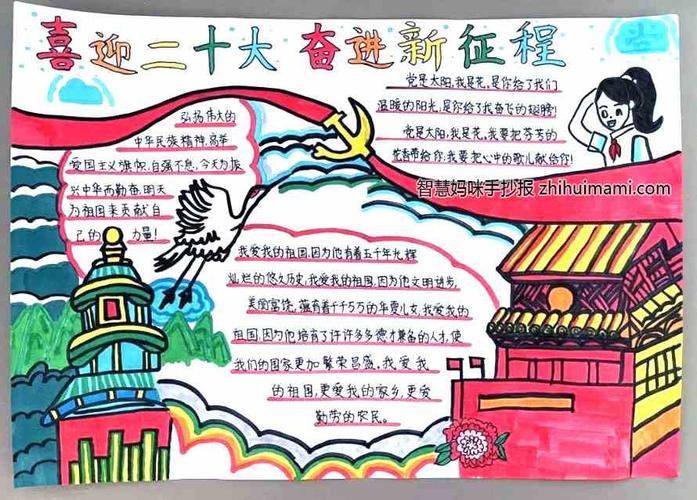 喜迎二十大 奋进新征程
弘扬伟大的
中华民族精神,高举
爱国主义旗帜,自强不息,今天为振
兴中华而勤奋,明天
为祖国来贡献自
己的 力量!
党是太阳,我是花,是你给了我们
温暖的阳光,是你给了我奋飞的翅膀!
党是太阳,我是花,我要把芬芳的
花香带给你,我要把心中的歌儿献给你!
智慧妈咪手抄报 zhihuimami.com
我爱我的祖国,因为他有着五千年光辉
灿烂的悠久历史,我爱我的祖国,因为他文明进步,
美丽富饶,蕴育着千千万万的华夏儿女,我爱我的
祖国,因为他培育了许许多多德才兼备的人才,使
我们的国家更加繁荣昌盛,我爱我
的祖国,更爱我的家乡,更爱
勤劳的农民。